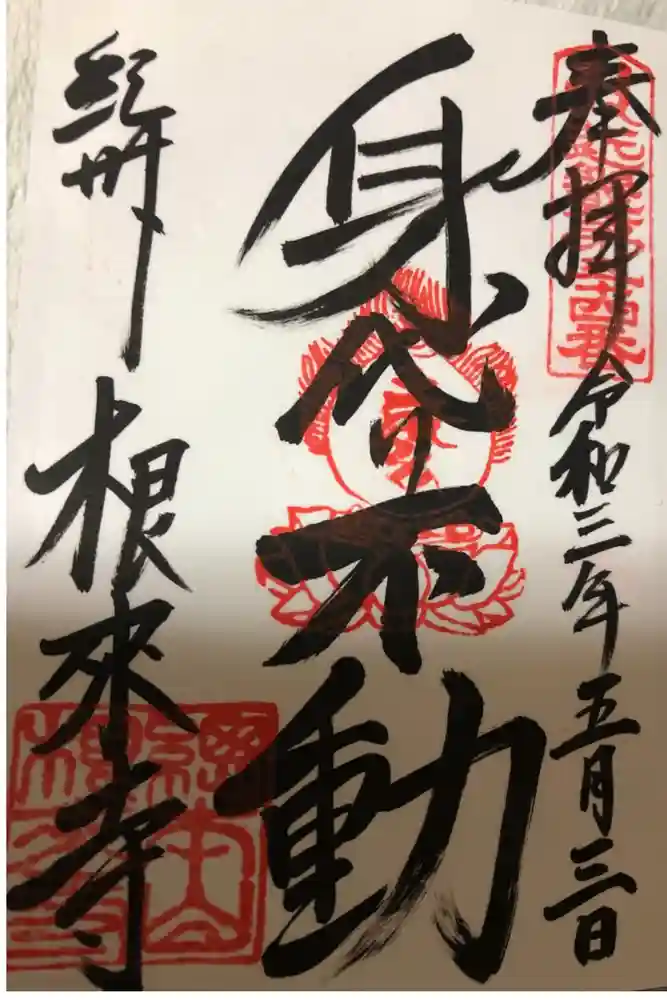 奉拝 令和三年五月三日
身代り不動
紀州 根來寺